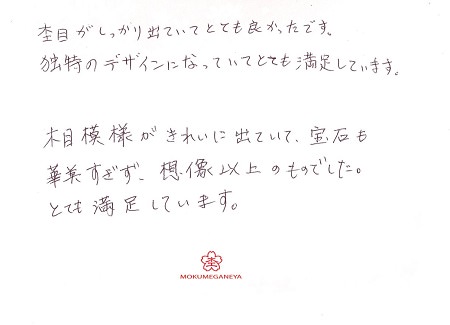 杢目がしっかり出ていてとても良かったです。
独特のデザインになっていてとても満足しています。
木目模様がきれいに出ていて、宝石も
華美すぎず、想像以上のものでした。
とても満足しています。
杢
MOKUMEGANEYA